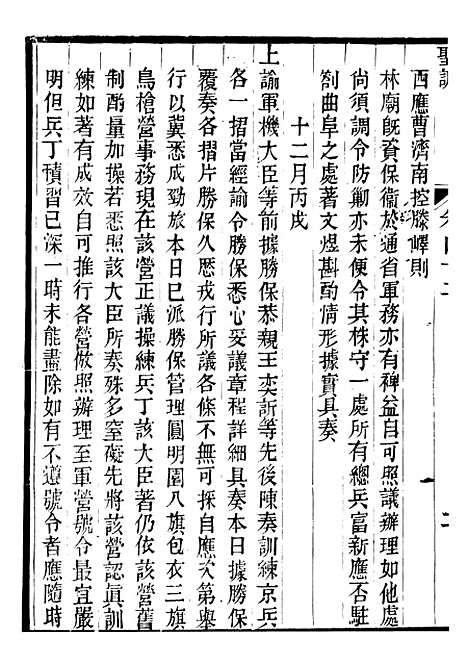 聖訓
西應曹濟南控滕嶧則
林廟既資保衞於通省軍務亦有裨益自可照議辦理如他處
尚須調令防勦亦未便令其株守一處所有總兵富新應否駐
劄曲阜之處著文煜斟酌情形據實具奏
十二月丙戌
上諭軍機大臣等前據勝保恭親王奕訢等先後陳奏訓練京兵
各一摺當經諭令勝保悉心妥議章程詳細具奏本日據勝保
覆奏各摺片勝保久歷戎行所議各條不無可採自應次第舉
行以冀悉成勁旅本日已派勝保管理圓明園八旗包衣三旗
鳥槍營事務現在該營正議操練兵丁該大臣著仍依該營舊
制酌量加操若悉照該大臣所奏殊多窒礙先將該營認眞訓
練如著有成效自可推行各營倣照辦理至軍營號令最宜嚴
明但兵丁積習已深一時未能盡除如有不遵號令者應隨時